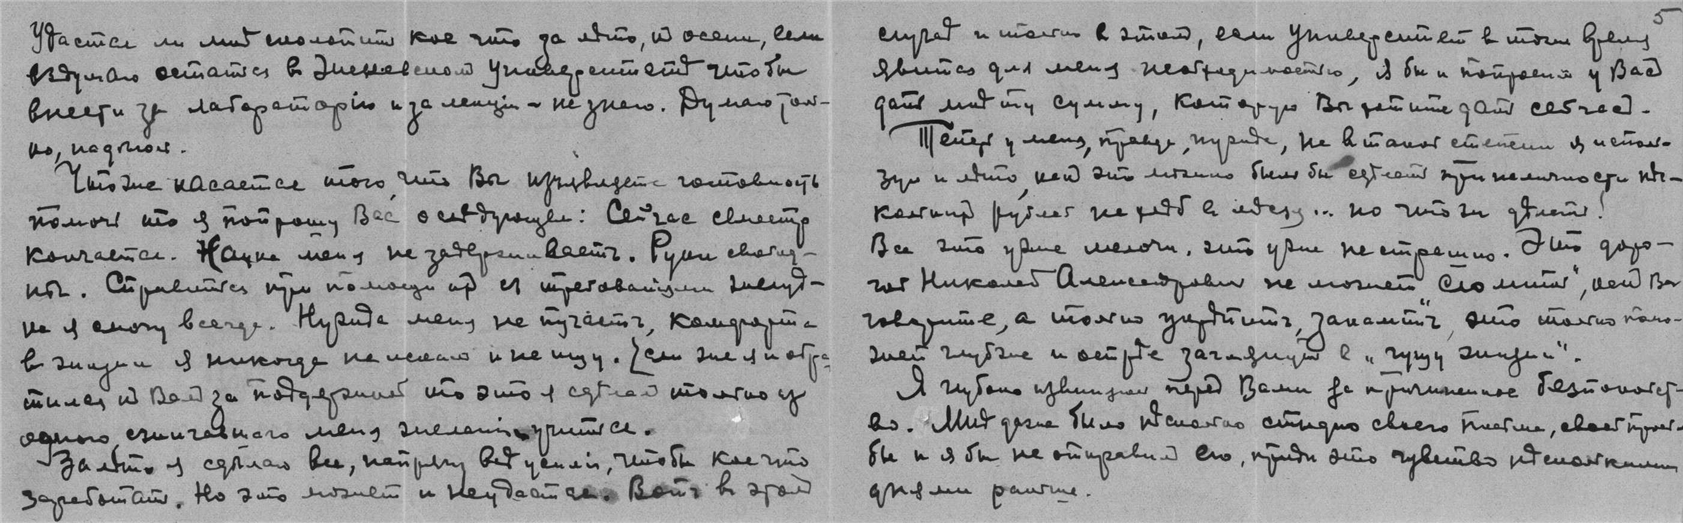 Удастся ли мнѣ сколотить кое что за лѣто, и осенью, если
вздумаю остаться в Женевском Университетѣ чтобы
внести за лабораторію и за лекціи – не знаю. Думаю толь-
ко, надѣюсь.
Что же касается того, что Вы изъявляете готовность
помочь то я попрошу Вас о слѣдующем: Сейчас семестр
кончается. Наука меня не задерживаетъ. Руки свобод-
ны. Справиться при помощи их с требованіями желуд-
ка я смогу всегда. Нужда меня не пугаетъ, комфорта
в жизни я никогда не искал и не ищу. Если же я и обра-
тился к Вам за поддержкой то это я сдѣлал только из
одного, измучившаго меня желанія учиться.
За лѣто я сдѣлаю все, напрягу всѣ усилія, чтобы кое что
заработать. Но это может и не удасться. Вотъ в этом
5
случаѣ и только в этом, если Университет в то же время
явится для меня необходимостью, я бы и попросил у Вас
дать мнѣ ту сумму, которую Вы хотите дать сейчас.
Теперь у меня, правда, нужда, не в такой степени я исполь-
зую и лѣто, как это можно было бы сдѣлать при наличности нѣс-
кольких рублей но что ж дѣлать!
Все это уже мелочи, это уже не страшно. Это доро-
гой Николай Александрович не может "сломить", как Вы
говорите, а только укрѣпить, закалить, это только помо-
жет глубже и острѣе заглянуть в "гущу жизни".
Я глубоко извиняюсь перед Вами за причиненное безпокойст-
во. Мнѣ даже было нѣсколько стыдно своего письма, своей прось-
бы и я бы не отправил его, приди это чувство нѣсколькими
днями раньше.